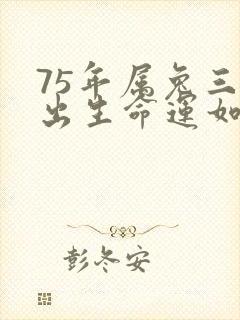 75年属兔三
出生命运如
彭冬安